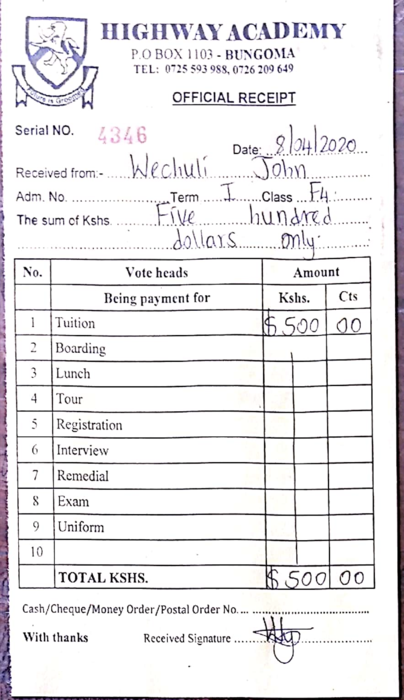 HIGHWAY ACADEMY
P.O BOX 1103 - BUNGOMA
TEL: 0725 593 988, 0726 209 649
OFFICIAL RECEIPT
Serial NO. 4346
Date: 8/04/2020
Received from:- Wechuli John
Adm. No. Term I Class F4
The sum of Kshs. Five hundred
dollars only
No. Vote heads Amount
Being payment for Kshs. Cts
1 Tuition $500 00
2 Boarding
3 Lunch
4 Tour
5 Registration
6 Interview
7 Remedial
8 Exam
9 Uniform
10
TOTAL KSHS. $500 00
Cash/Cheque/Money Order/Postal Order No.
With thanks Received Signature